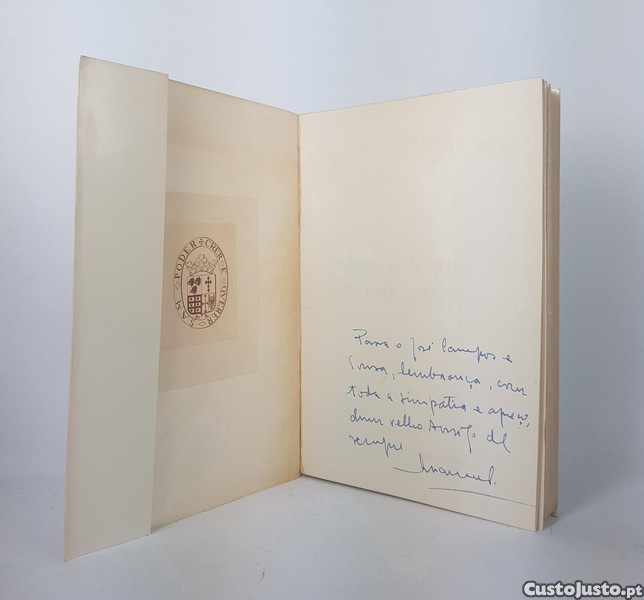 PODER CRER E QUERER SAM
Para o José Campos e
Sousa, lembrança, com
toda a simpatia e apreço,
dum velho Amigo de
sempre
Manuel.
CustoJusto.pt